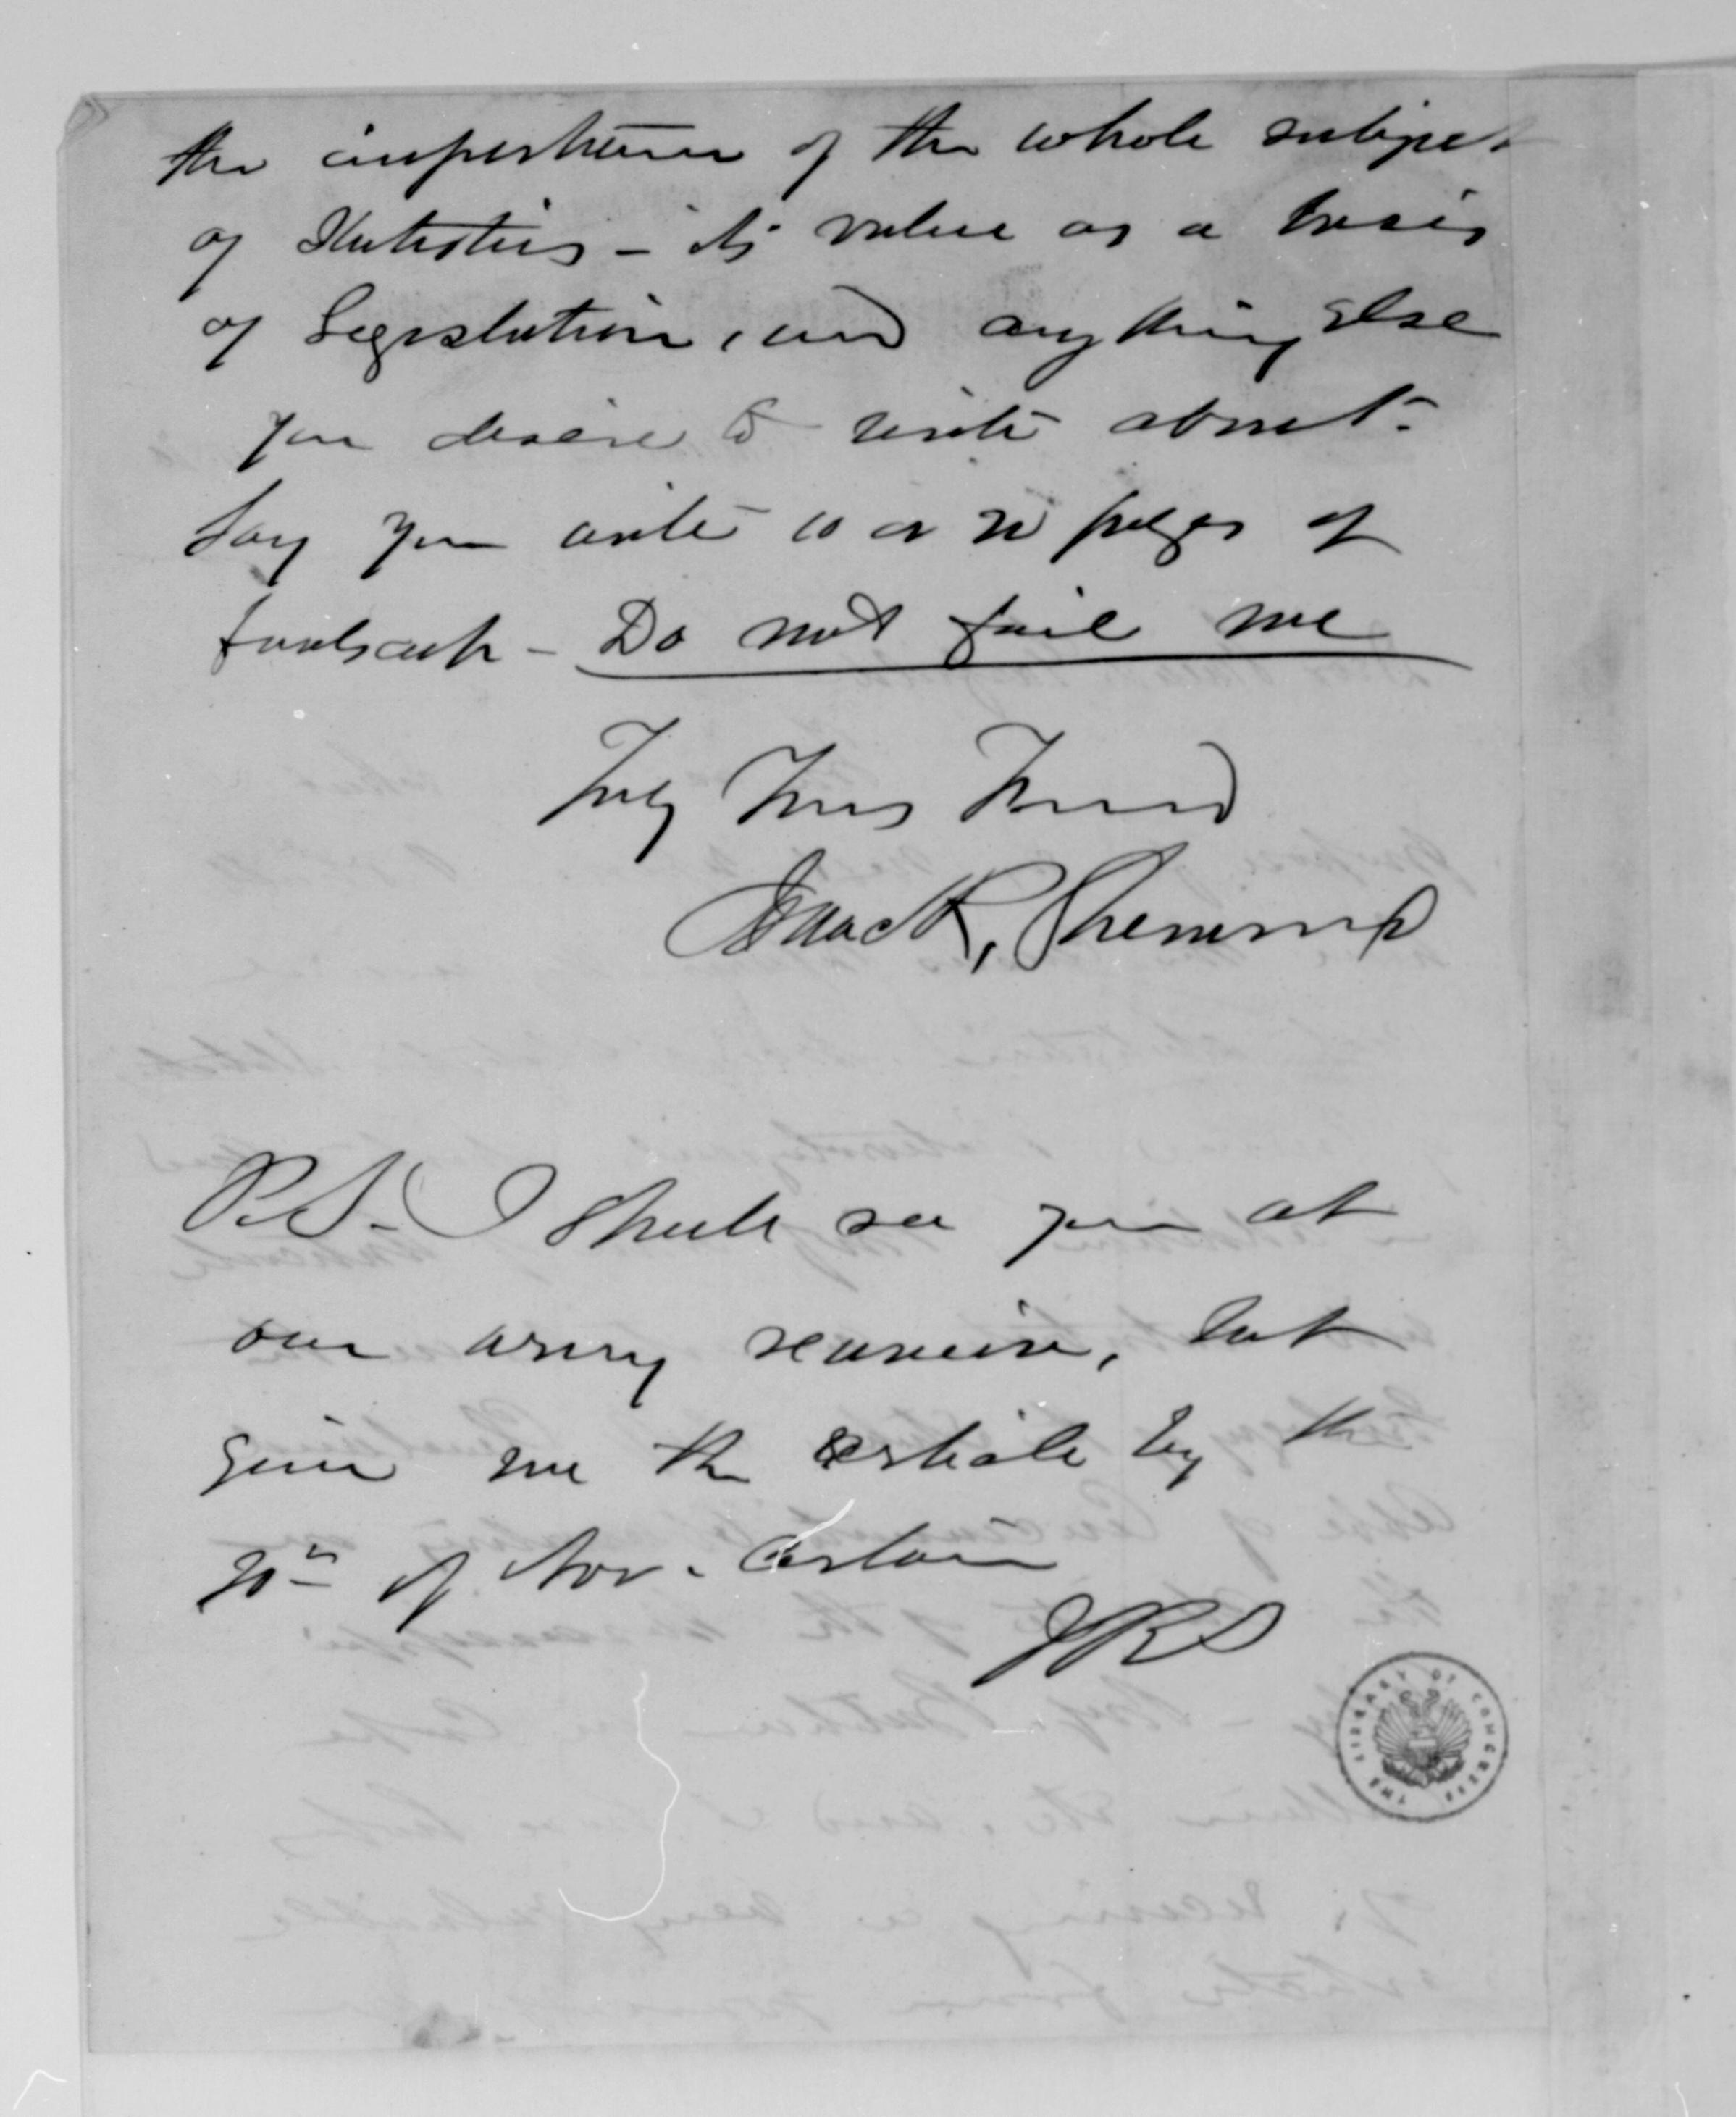 the importance of the whole subject
of Statistics - its value as a basis
of Legislation, and anything else
you desire to write about -
Say you write 10 or 20 pages of
foolscap - Do not fail me
Truly Your Friend
Isaac R. Sherwood
P.S. - I shall see you at
our army reunion, but
give me the article by the
20th of Nov. Certain
IRS
THE LIBRARY OF CONGRESS